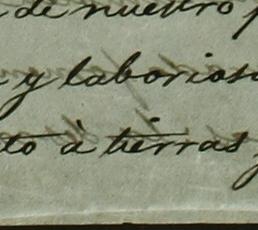 de nuestro
y laborios
to à tierras